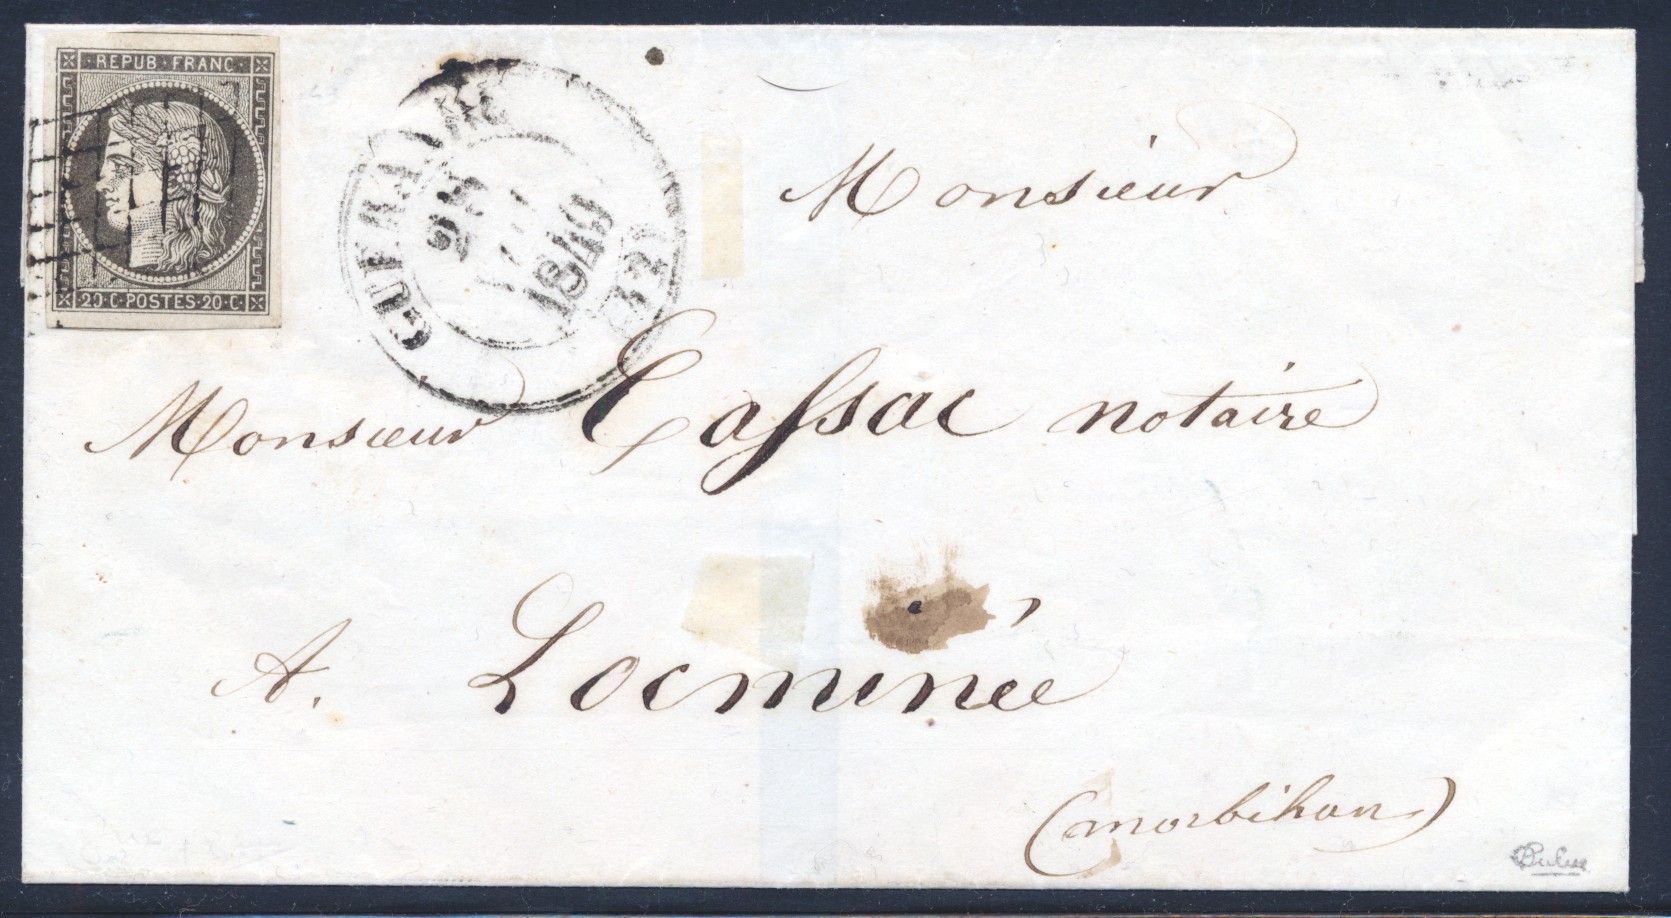 REPUB·FRANC·
20·C·POSTES·20·C·
GUERANDE
28
1849
Monsieur
Monsieur Cassac notaire
A. Locminée
(morbihan)